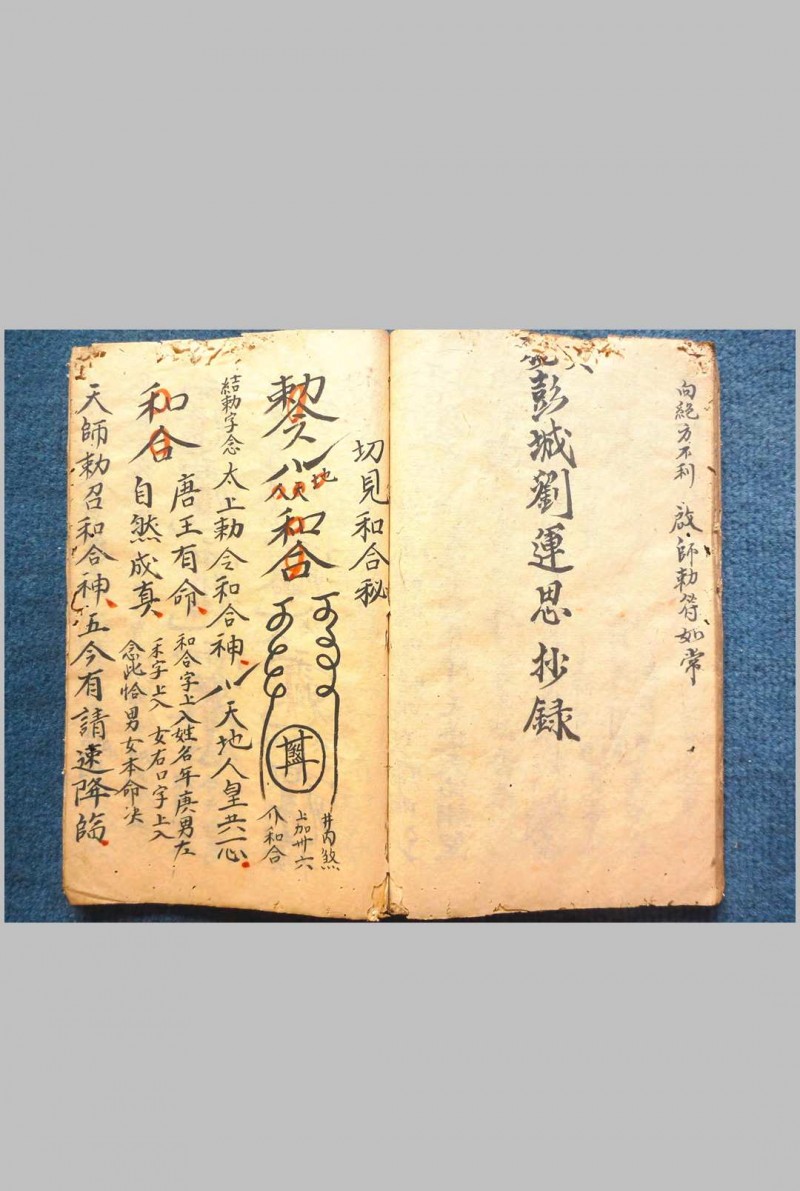 向絕方不利 啟師勅符如常
彭城劉運思抄錄
切見和合秘
勅令
地
和合
井内煞
上加卅六
个和合
結勅字念 太上勅令和合神、八天地人皇共一心、
和合 唐王有命、自然成真、
和合字上入姓名年庚男左
禾字上入 女右口字上入
念此恰男女本命决
天師勅召和合神、五今有請速降臨、